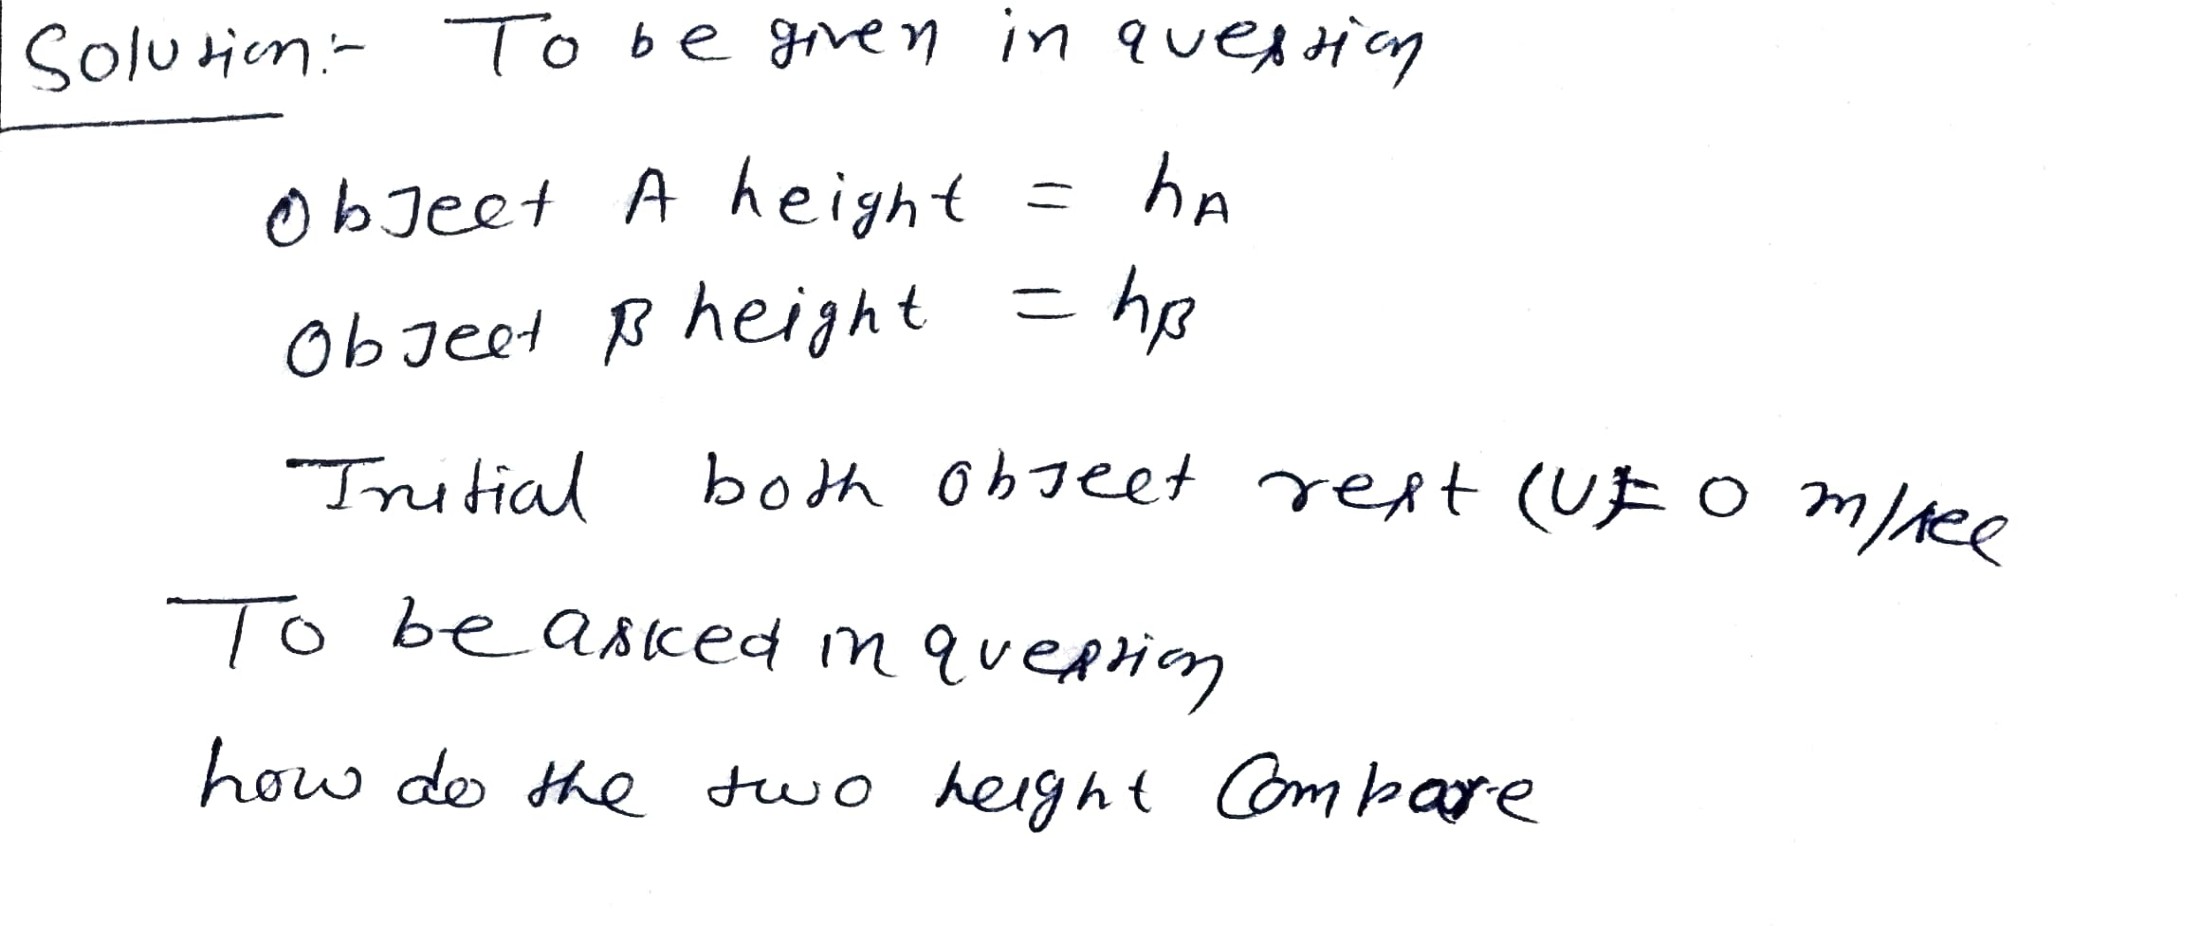 Solution:- To be given in question
Object A height = hA
Object B height = hB
Initial both object rest (U)= 0 m/sec
To be asked in question
how do the two height Compare